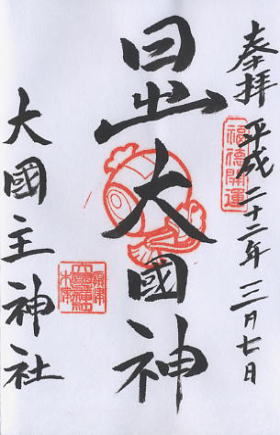 奉拝 平成二十二年 三月七日
福德開運
日出大國神
大國主神社